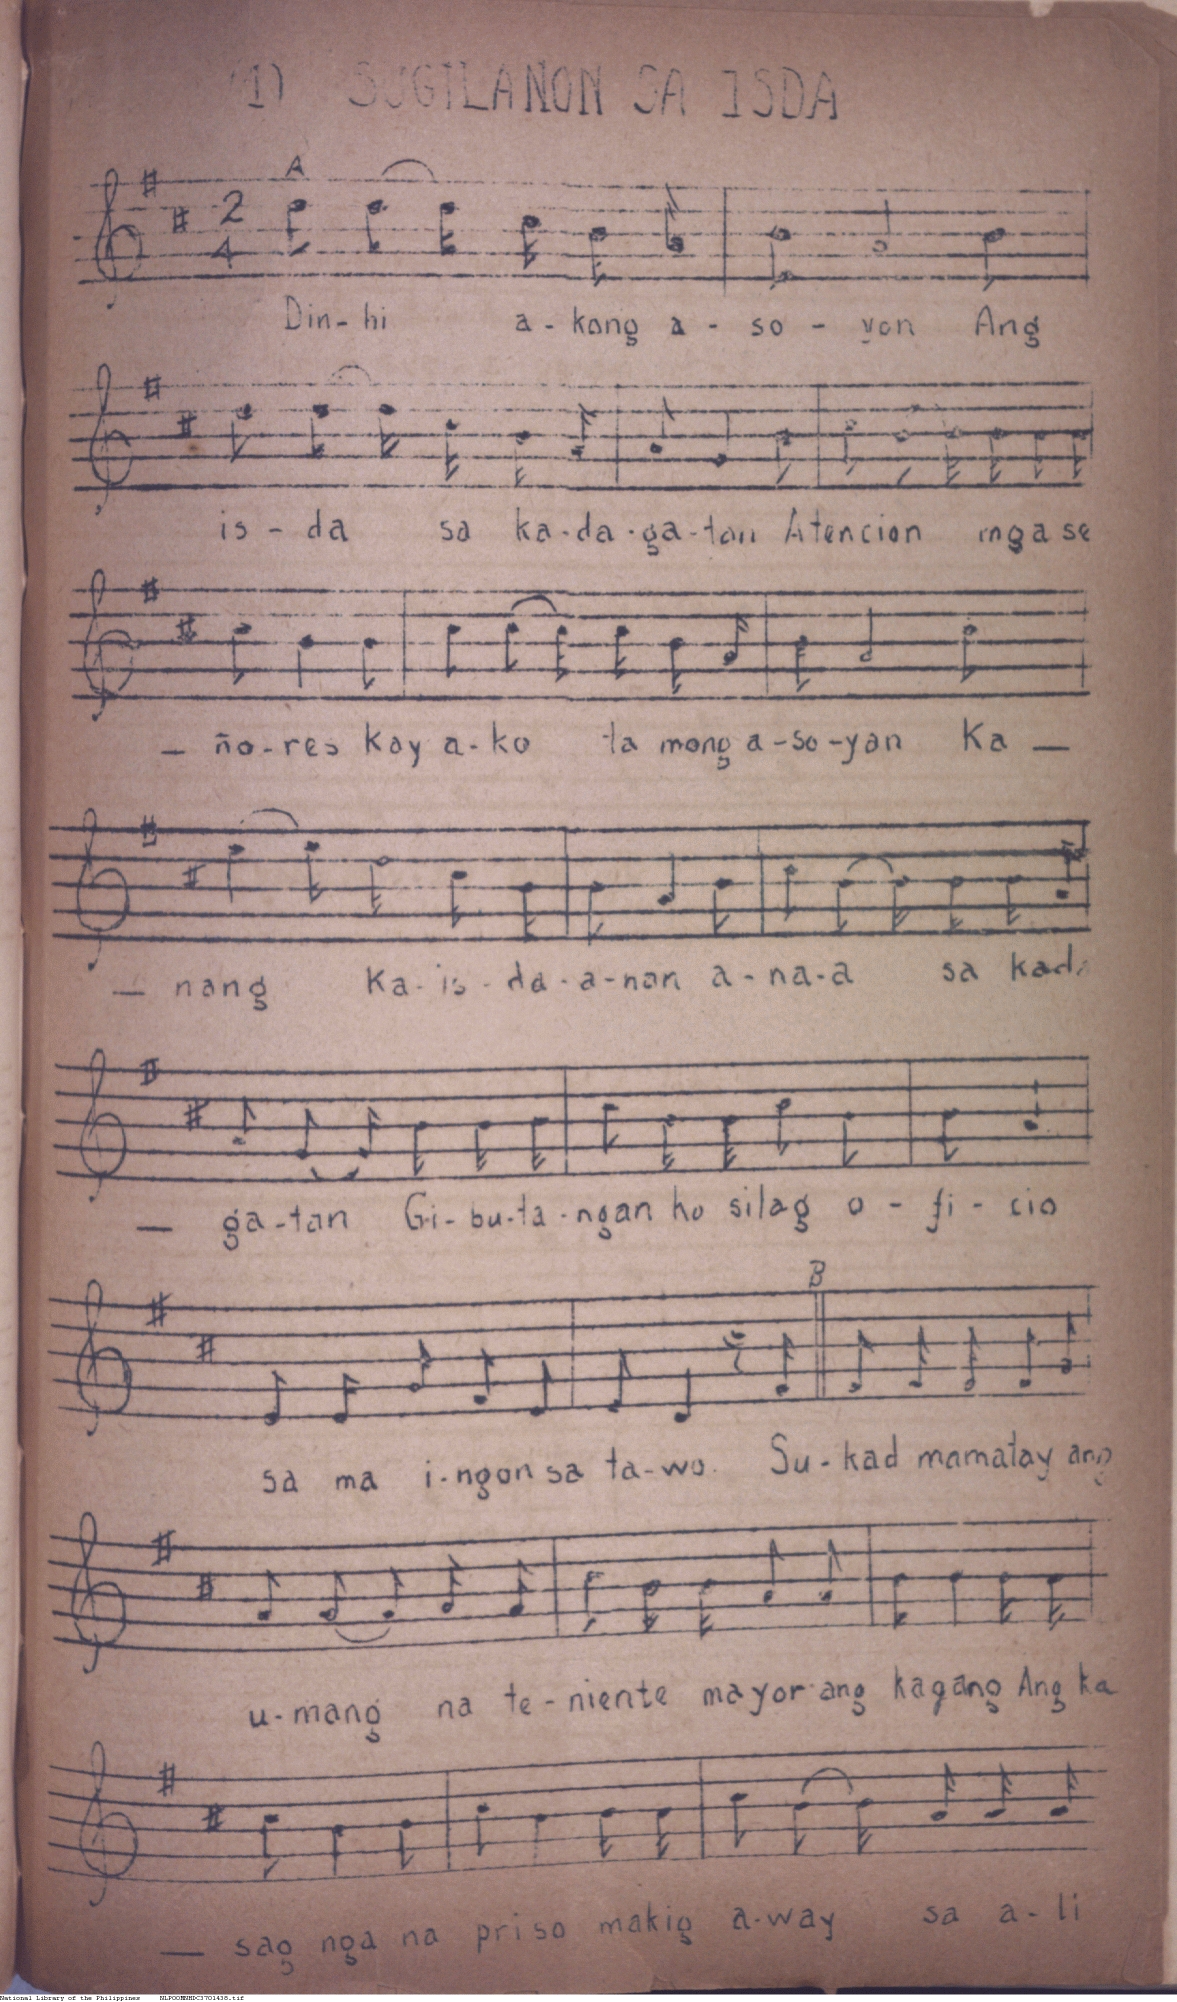 (1) SUGILANON SA ISDA
A
2
4
Din-hi a-kong a-so-yon Ang
is-da sa ka-da-ga-tan Atencion mga se
— ño-res kay a-ko ta mong a-so-yan Ka —
— nang ka-is-da-a-nan a-na-a sa kada
— ga-tan Gi-bu-ta-ngan ko silag o-fi-cio
B
sa ma i-ngon sa ta-wo. Su-kad mamatay ang
u-mang na te-niente mayor ang kagang Ang ka
— sag nga na priso makig a-way sa a-li
National Library of the Philippines NLPOOMNHDC3701438.tif